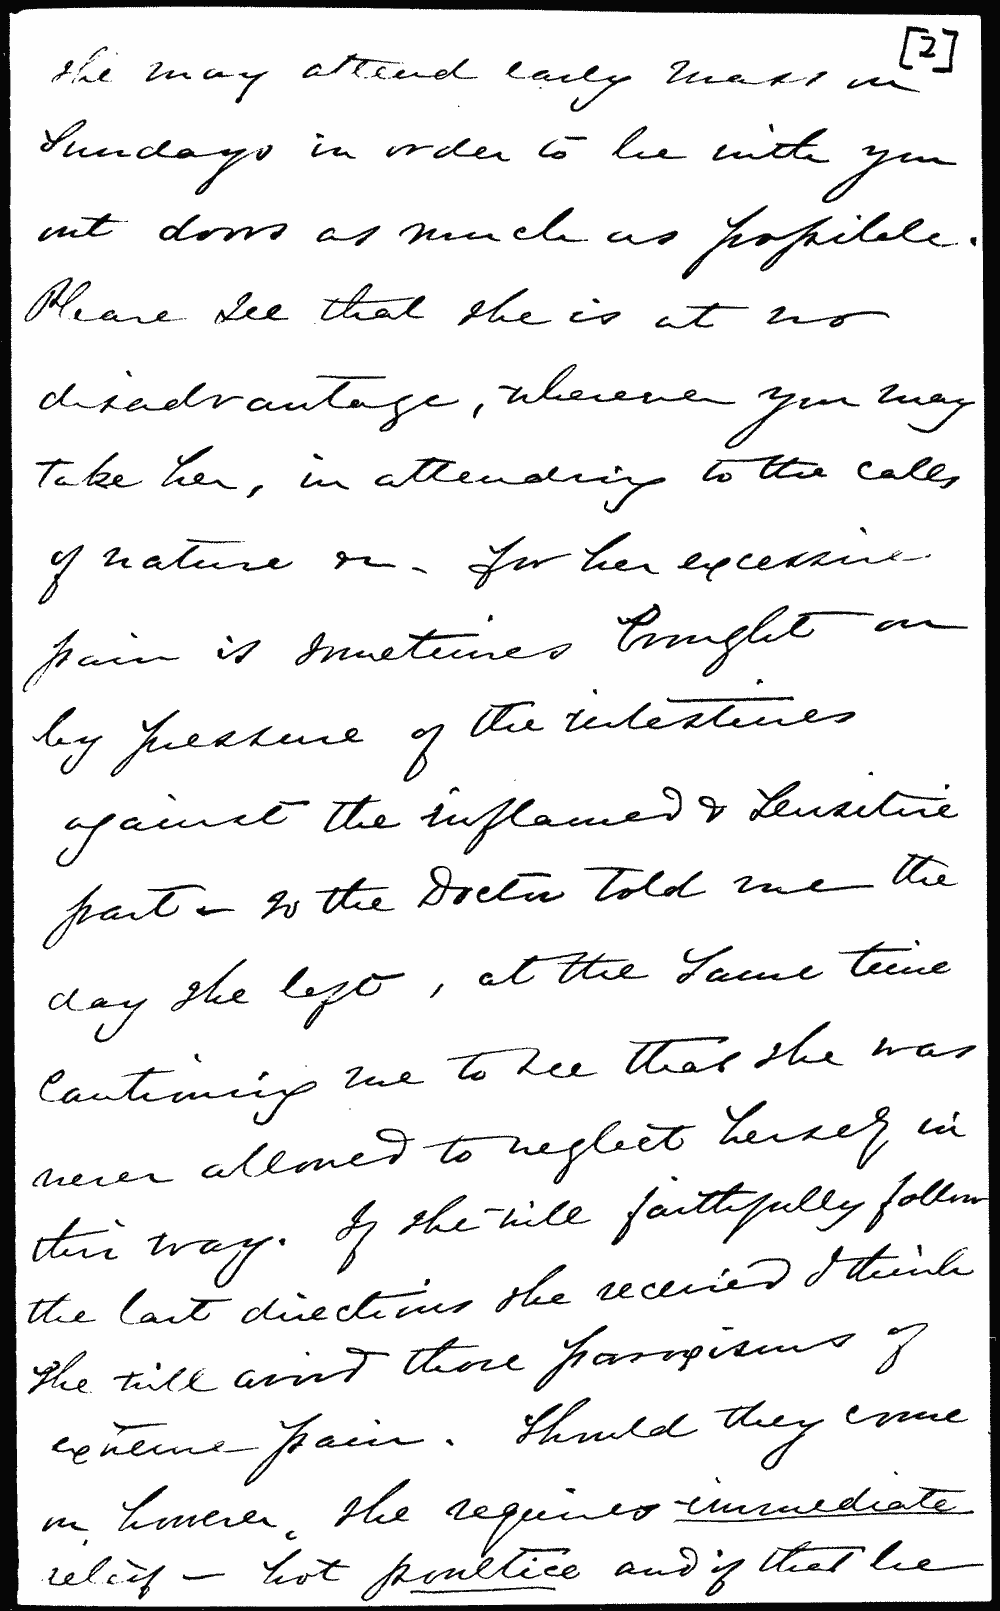 [2]
she may attend early mass on
Sundays in order to be with you
out doors as much as possible.
Please see that she is at no
disadvantage, wherever you may
take her, in attending to the calls
of nature on - for her excessive
pain is sometimes brought on
by pressure of the intestines
against the inflamed & sensitive
part - so the Doctor told me the
day she left, at the same time
cautioning me to see that she was
never allowed to neglect herself in
this way. If she will faithfully follow
the last directions she received I think
she will avoid those paroxisms of
extreme pain. Should they come
on however, she requires immediate
relief - hot poultice and if that be